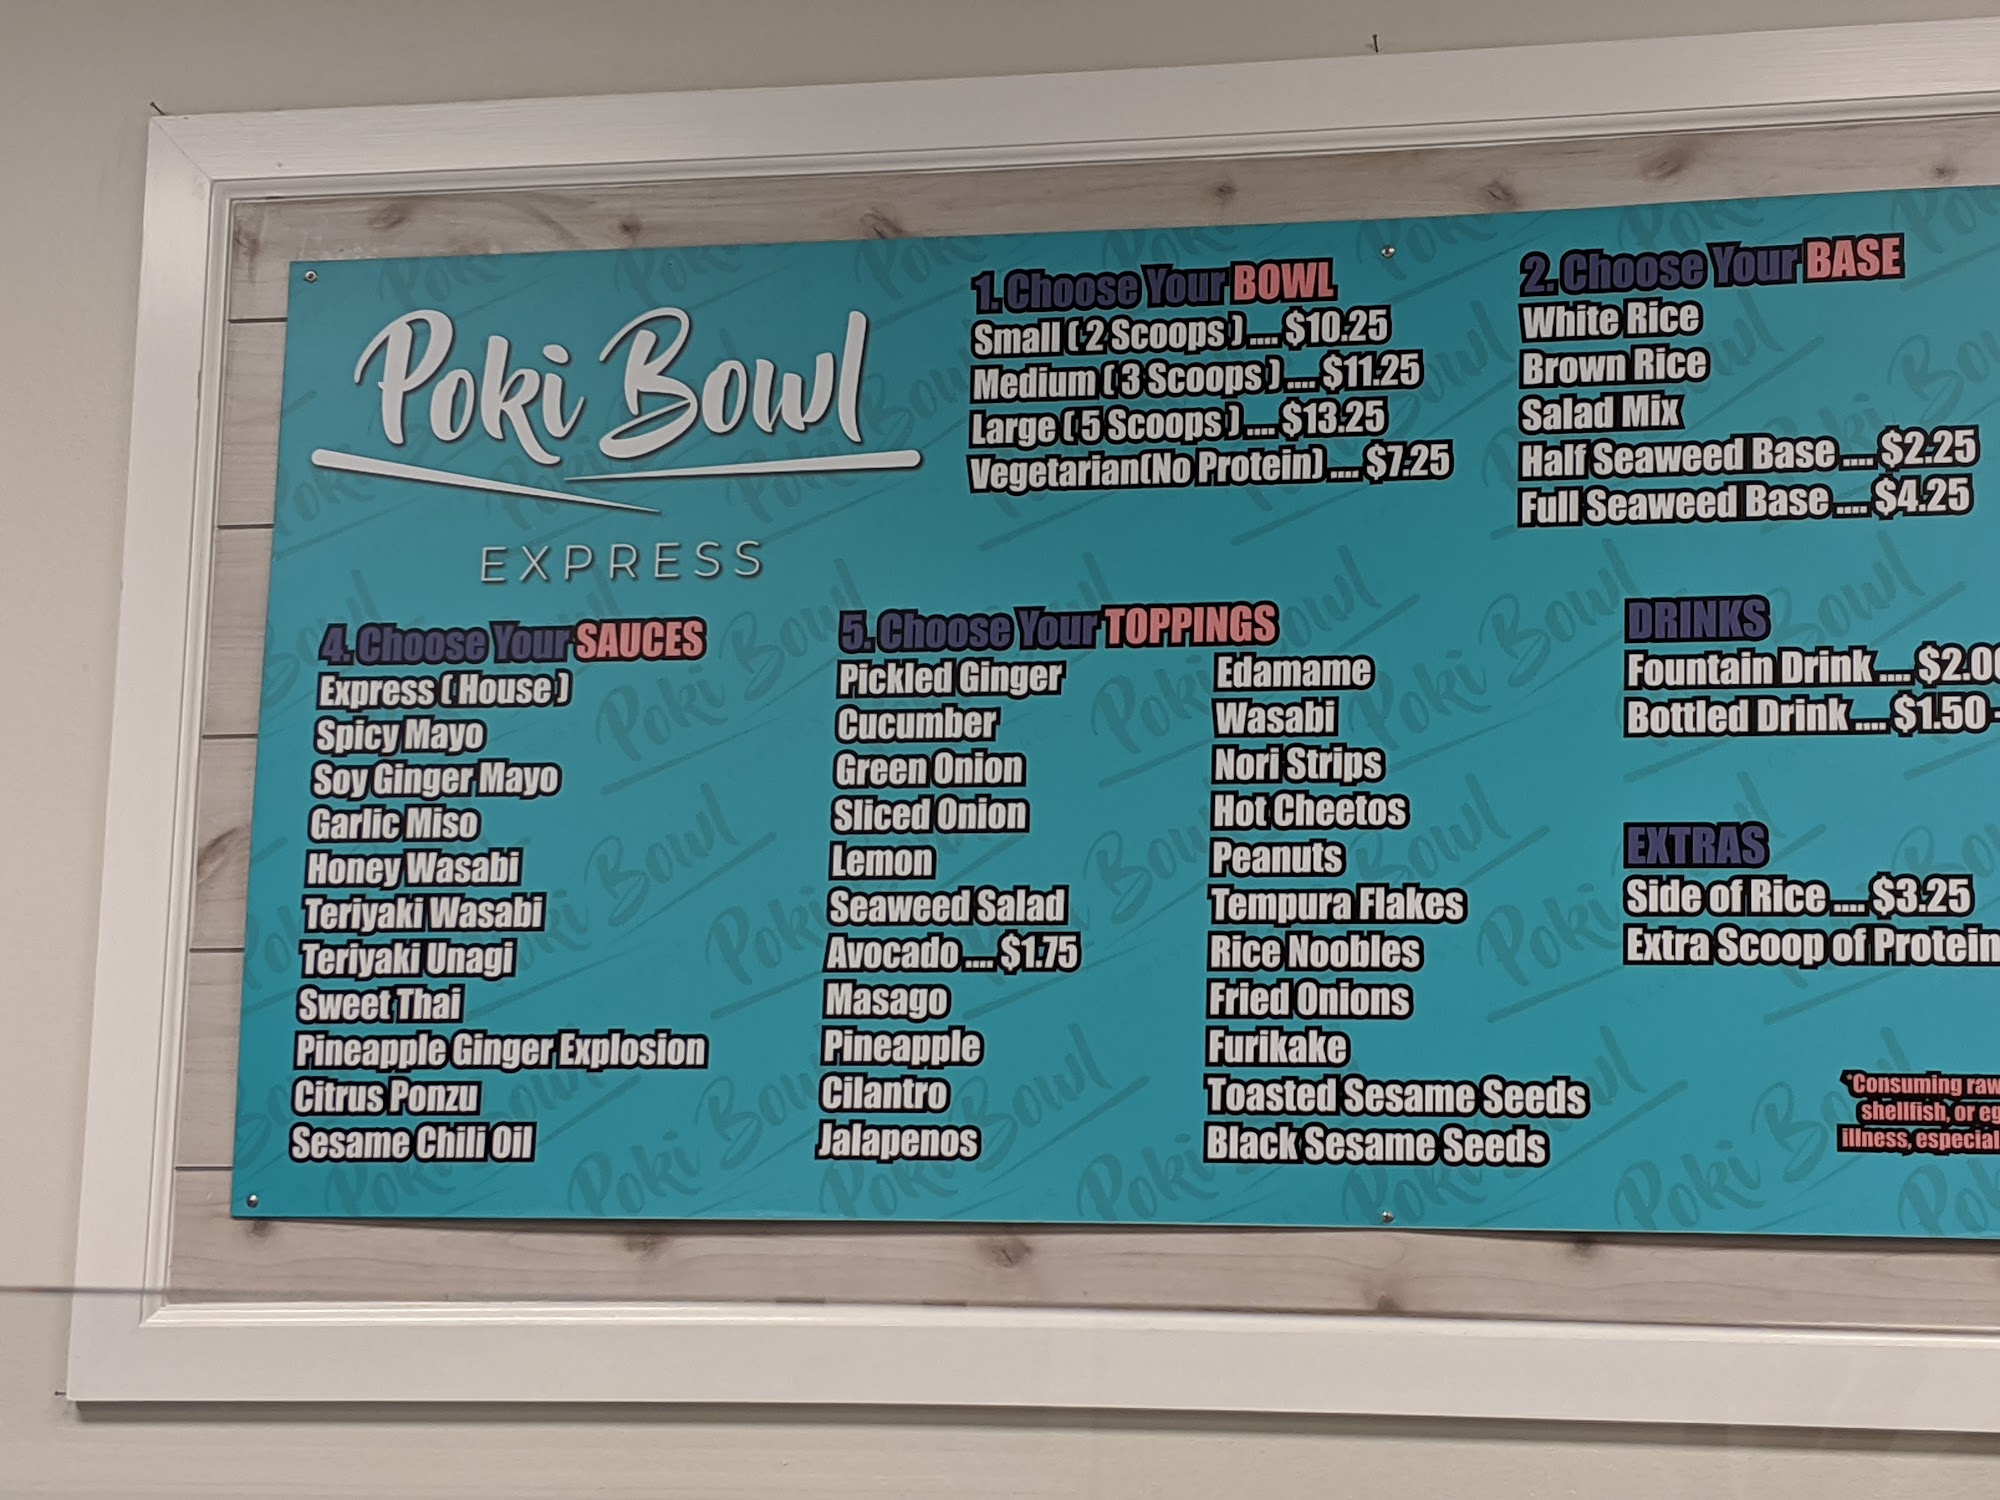 Poki Bowl
EXPRESS
1. Choose Your BOWL
Small ( 2 Scoops ) .... $10.25
Medium ( 3 Scoops ) .... $11.25
Large ( 5 Scoops ) .... $13.25
Vegetarian(No Protein) .... $7.25
2. Choose Your BASE
White Rice
Brown Rice
Salad Mix
Half Seaweed Base .... $2.25
Full Seaweed Base .... $4.25
4. Choose Your SAUCES
Express ( House )
Spicy Mayo
Soy Ginger Mayo
Garlic Miso
Honey Wasabi
Teriyaki Wasabi
Teriyaki Unagi
Sweet Thai
Pineapple Ginger Explosion
Citrus Ponzu
Sesame Chili Oil
5. Choose Your TOPPINGS
Pickled Ginger
Cucumber
Green Onion
Sliced Onion
Lemon
Seaweed Salad
Avocado .... $1.75
Masago
Pineapple
Cilantro
Jalapenos
Edamame
Wasabi
Nori Strips
Hot Cheetos
Peanuts
Tempura Flakes
Rice Noobles
Fried Onions
Furikake
Toasted Sesame Seeds
Black Sesame Seeds
DRINKS
Fountain Drink .... $2.00
Bottled Drink .... $1.50 -
EXTRAS
Side of Rice .... $3.25
Extra Scoop of Protein
*Consuming raw
shellfish, or
illness,